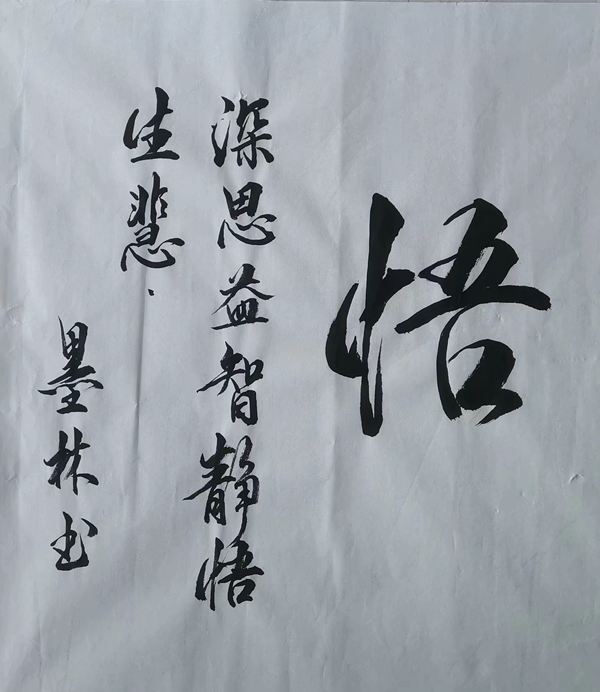 悟
深思益智静悟
生慧.
墨林书